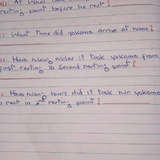 resting point before he rest]
What time did yakama arrive at home]
How Many miles it took yakama from
first resting to second resting point]
How Many hours did it took
to rest in 2nd resting point]